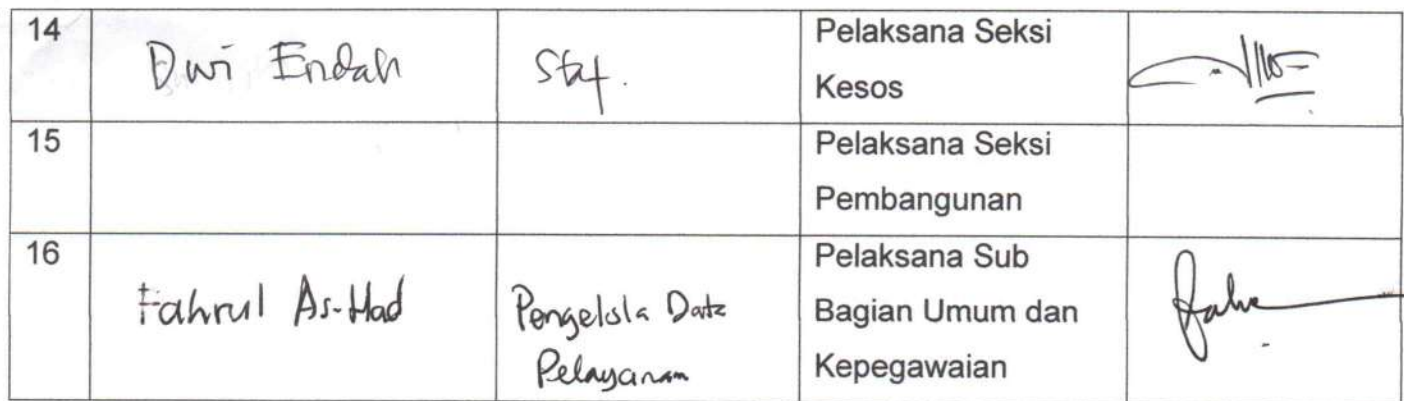 14
Dwi Endah
Staf.
Pelaksana Seksi
Kesos
15
Pelaksana Seksi
Pembangunan
16
Fahrul As-Had
Pengelola Data
Pelayanan
Pelaksana Sub
Bagian Umum dan
Kepegawaian